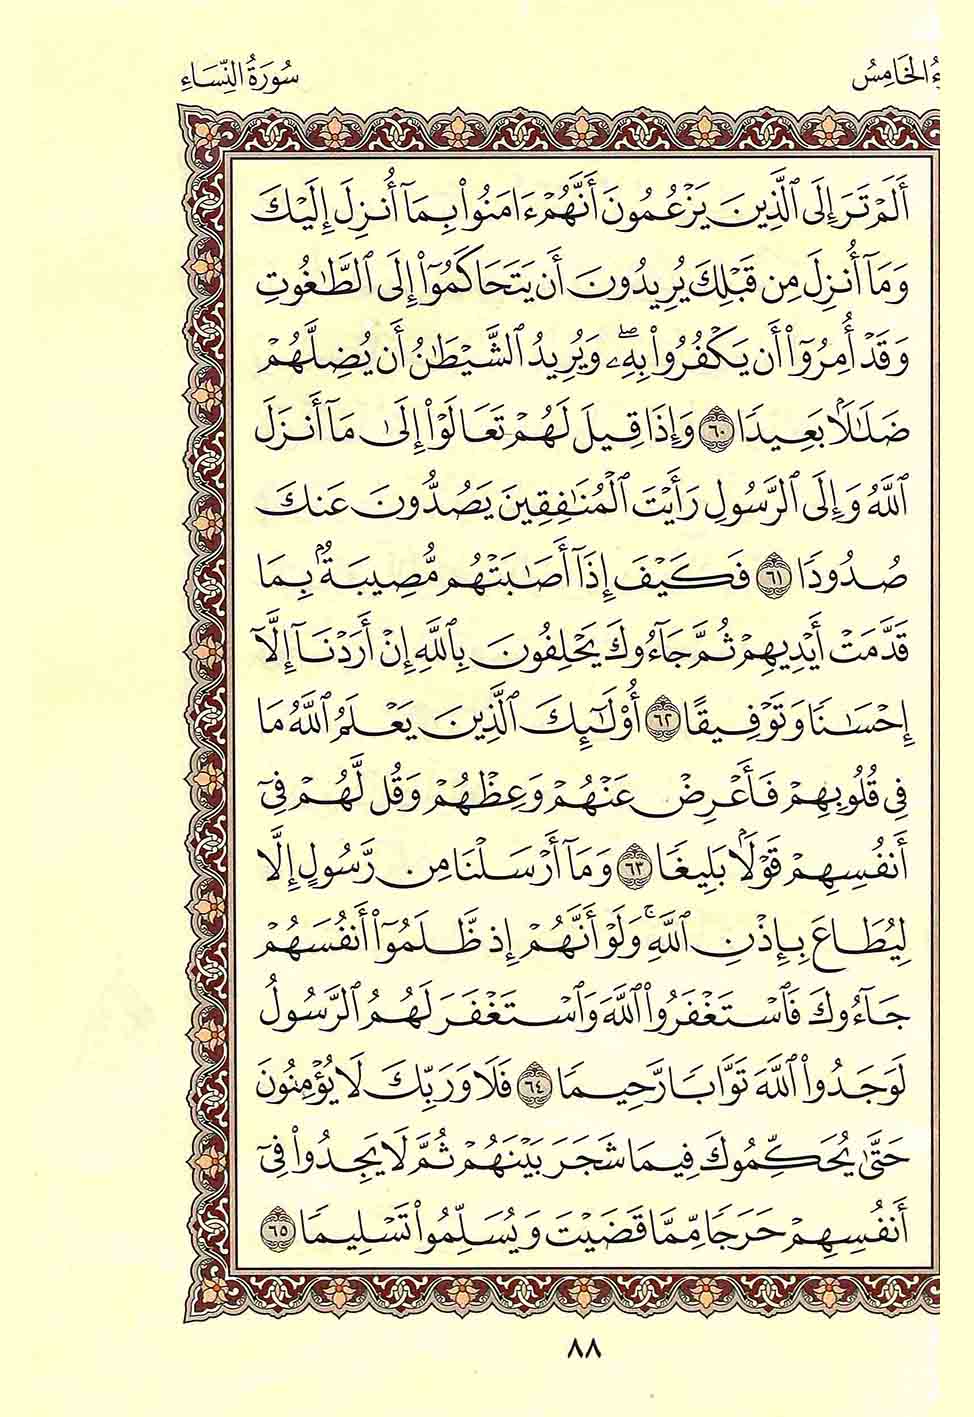 ءُ الْخَامِسُ سُورَةُ النِّسَاءِ
أَلَمْ تَرَ إِلَى ٱلَّذِينَ يَزْعُمُونَ أَنَّهُمْ ءَامَنُوا۟ بِمَآ أُنزِلَ إِلَيْكَ
وَمَآ أُنزِلَ مِن قَبْلِكَ يُرِيدُونَ أَن يَتَحَاكَمُوٓا۟ إِلَى ٱلطَّـٰغُوتِ
وَقَدْ أُمِرُوٓا۟ أَن يَكْفُرُوا۟ بِهِۦۖ وَيُرِيدُ ٱلشَّيْطَـٰنُ أَن يُضِلَّهُمْ
ضَلَـٰلًۢا بَعِيدًا ٦٠ وَإِذَا قِيلَ لَهُمْ تَعَالَوْا۟ إِلَىٰ مَآ أَنزَلَ
ٱللَّهُ وَإِلَى ٱلرَّسُولِ رَأَيْتَ ٱلْمُنَـٰفِقِينَ يَصُدُّونَ عَنكَ
صُدُودًا ٦١ فَكَيْفَ إِذَآ أَصَـٰبَتْهُم مُّصِيبَةٌۢ بِمَا
قَدَّمَتْ أَيْدِيهِمْ ثُمَّ جَآءُوكَ يَحْلِفُونَ بِٱللَّهِ إِنْ أَرَدْنَآ إِلَّآ
إِحْسَـٰنًا وَتَوْفِيقًا ٦٢ أُو۟لَـٰٓئِكَ ٱلَّذِينَ يَعْلَمُ ٱللَّهُ مَا
فِى قُلُوبِهِمْ فَأَعْرِضْ عَنْهُمْ وَعِظْهُمْ وَقُل لَّهُمْ فِىٓ
أَنفُسِهِمْ قَوْلًۢا بَلِيغًا ٦٣ وَمَآ أَرْسَلْنَا مِن رَّسُولٍ إِلَّا
لِيُطَاعَ بِإِذْنِ ٱللَّهِۚ وَلَوْ أَنَّهُمْ إِذ ظَّلَمُوٓا۟ أَنفُسَهُمْ
جَآءُوكَ فَٱسْتَغْفَرُوا۟ ٱللَّهَ وَٱسْتَغْفَرَ لَهُمُ ٱلرَّسُولُ
لَوَجَدُوا۟ ٱللَّهَ تَوَّابًا رَّحِيمًا ٦٤ فَلَا وَرَبِّكَ لَا يُؤْمِنُونَ
حَتَّىٰ يُحَكِّمُوكَ فِيمَا شَجَرَ بَيْنَهُمْ ثُمَّ لَا يَجِدُوا۟ فِىٓ
أَنفُسِهِمْ حَرَجًا مِّمَّا قَضَيْتَ وَيُسَلِّمُوا۟ تَسْلِيمًا ٦٥
٨٨